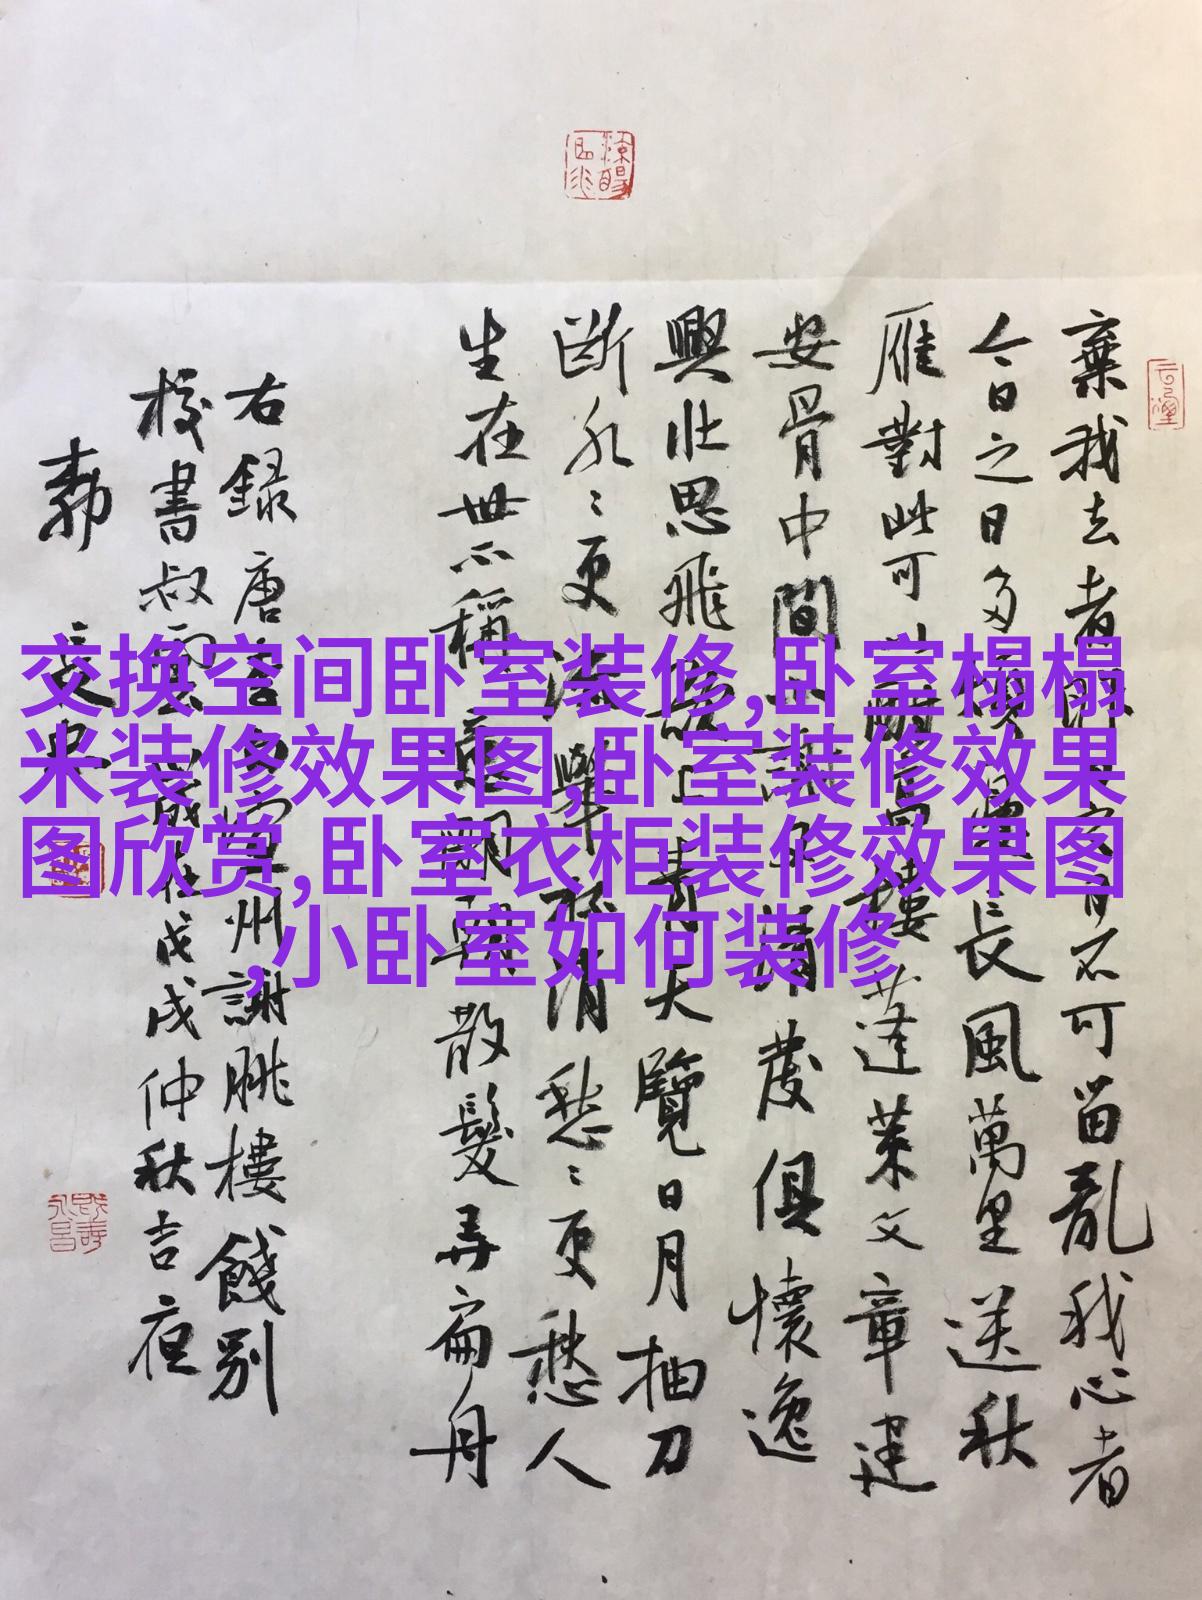 棄我去者昨日之日不可留亂我心者
今日之日多煩憂長風萬里送秋
雁對此可以酣高樓蓬萊文章建
安骨中間小謝又清發俱懷逸
興壯思飛欲上青天覽日月抽刀
斷水々更流舉杯消愁々更愁人
生在世不稱意明朝散髮弄扁舟
右録唐李白宣州謝朓樓餞別
校書叔雲歲在戊戌仲秋吉夜
交换空间卧室装修,卧室榻榻
米装修效果图,卧室装修效果
图欣赏,卧室衣柜装修效果图
,小卧室如何装修